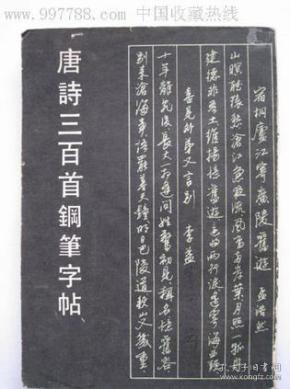 www.997788.com 中国收藏热线
宿桐廬江寄廣陵舊遊 孟浩然
山暝聽猿愁滄江急夜流風鳴兩岸葉月照一孤舟
建德非吾土維揚憶舊遊還將兩行淚遙寄海西頭
喜見外弟又言別 李益
十年離亂後長大一相逢問姓驚初見稱名憶舊容
別來滄海事語罷暮天鐘明日巴陵道秋山又幾重
唐詩三百首鋼筆字帖